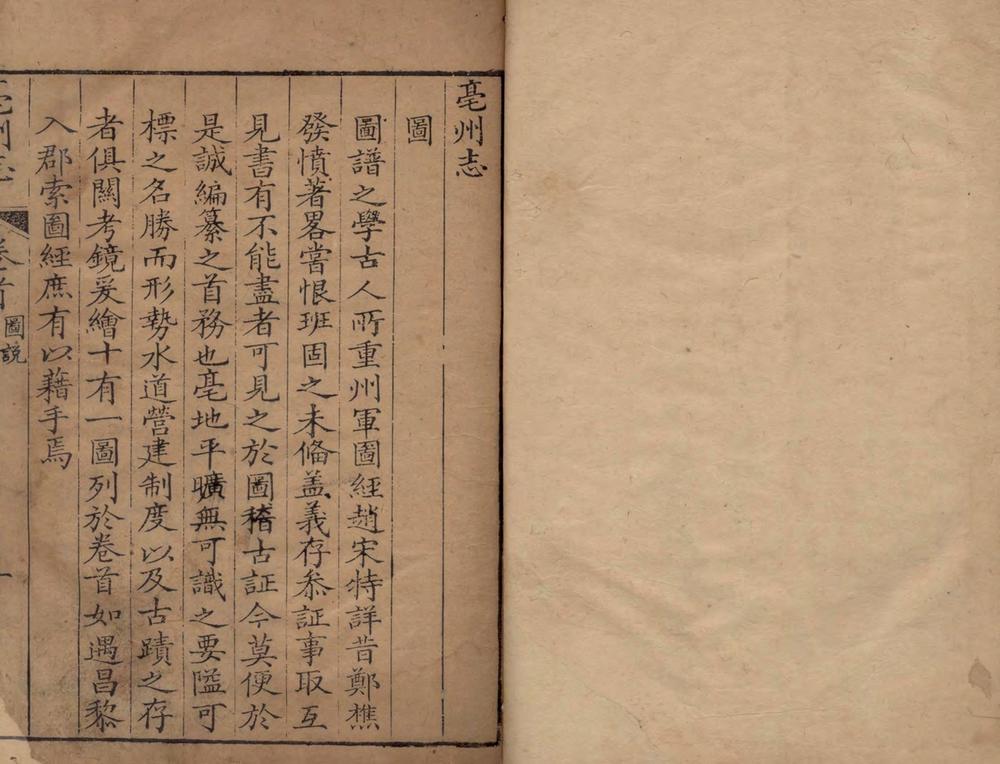 亳州志
圖
圖譜之學古人所重州軍圖經趙宋特詳昔鄭樵
發憤著畧嘗恨班固之未偹盖義存叅証事取互
見書有不能盡者可見之於圖稽古証今莫便於
是誠編纂之首務也亳地平曠無可識之要隘可
標之名勝而形勢水道營建制度以及古蹟之存
者俱關考鏡爰繪十有一圖列於卷首如遇昌黎
入郡索圖經庶有以藉手焉
亳州志
卷首
圖說
一